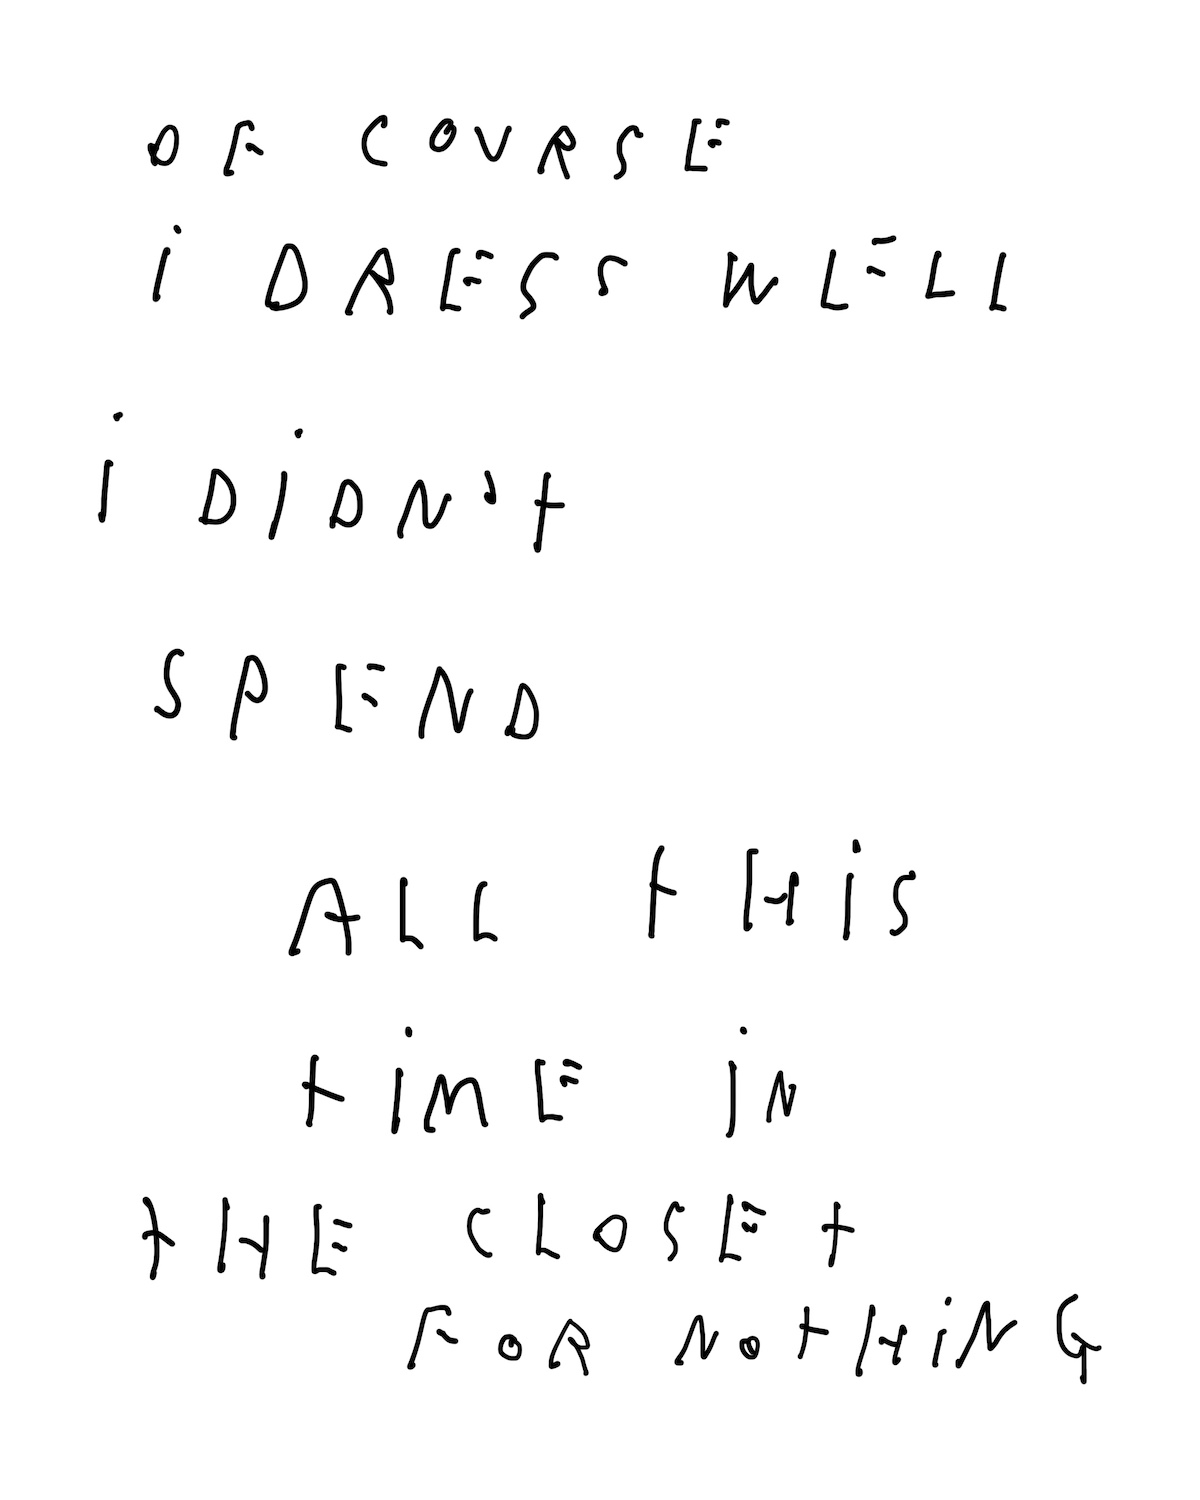 OF COURSE
i DRESS WELL
i DiDN't
SPEND
ALL tHiS
tiME iN
tHE CLOSEt
FOR NOtHiNG